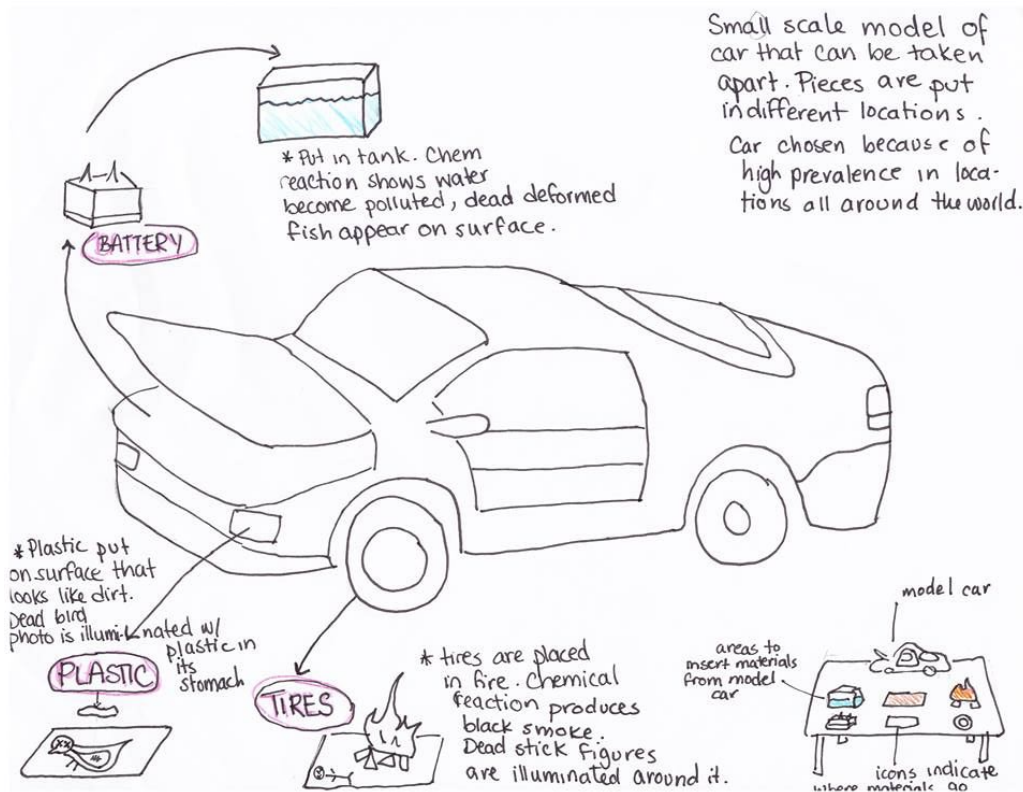 Small scale model of
car that can be taken
apart. Pieces are put
in different locations.
Car chosen because of
high prevalence in loca-
tions all around the world.
* Put in tank. Chem
reaction shows water
become polluted, dead deformed
fish appear on surface.
BATTERY
* Plastic put
on surface that
looks like dirt.
Dead bird
photo is illuminated w/
plastic in
its
stomach
PLASTIC
TIRES
* tires are placed
in fire. Chemical
reaction produces
black smoke.
Dead stick figures
are illuminated around it.
model car
areas to
insert materials
from model
car
icons indicate
where materials go